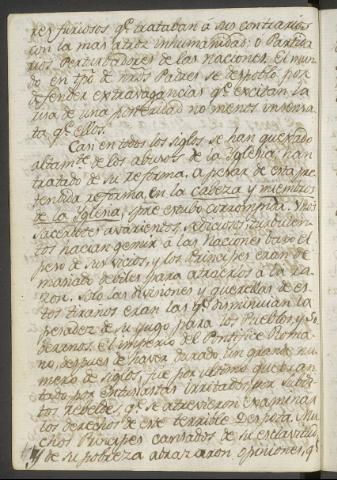 res furiosos qe trataban á sus contrarios
con la mas atroz inhumanidad: ó Partida
rios, Perturbadores de las Naciones. El mun
do en tpõ de nros Padres se despobló por
defender extravagancias qe excitan la
risa de una posteridad no menos insensa
ta qe ellos.
Casi en todos los siglos se han quejado
altamte de los abusos de la Iglesia, han
tratado de su reforma. A pesar de esta pre
tendida reforma en la cabeza y miembros
de la Iglesia, spre estubo corrompida. Unos
Sacerdotes avarientos, sediciosos, turbulen
tos hacian gemir á las Naciones bajo el
peso de sus vicios, y los Principes eran de
masiado debiles para atraerlos á la ra
zon. Solo las divisiones y querellas de es
tos tiranos eran las qe disminuian la
pesadez de su yugo para los Pueblos y So
beranos. El imperio del Pontifice Roma
no, despues de haver durado un grande nu
mero de siglos, fue por ultimo quebran
tado por Entusiastas irritados, por subdi
tos rebeldes, qe se atrevieron examinar
los derechos de este terrible Despota. Mu
chos Principes cansados de su esclavitud,
y de su pobreza abrazaron opiniones, qe